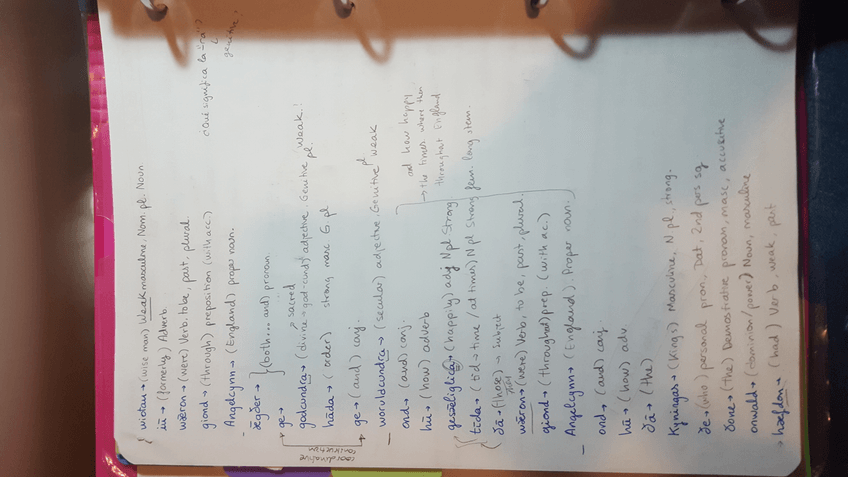 ¿Qué significa la "-ra"?
↳ genitive.
wiotan → (wise man) Weak masculine, Nom. pl. Noun
iū → (formerly) Adverb
wǣron → (were) Verb, to be, past, plural
giond → (through) preposition (with acc)
Angelcynn → (England) proper noun.
ǣgðer → } (both ... and) pronoun.
ge →
↗ sacred
godcundra → (divine → god-cund) adjective, Genitive pl. weak!
hāda → (order) strong masc G. pl
ge → (and) conj.
coordinative construction
woruldcundra → (secular) adjective Genitive pl weak
ond → (and) conj.
hū → (how) adverb
and how happy
→ the times where then
throughout England
gesǣliglica → (happily) adj N pl Strong
tīda → (tīd → time / at times) N pl Strong fem. long stem.
ðā → (those) → subject
wǣron → (were) Verb, to be, past, plural.
giond → (throughod) prep. (with ac.)
Angelcynn → (England) Proper noun.
ond → (and) conj
hū → (how) adv
ðā → (the)
Kyningas → (Kings) Masculine, N pl, strong.
ðe → (who) personal pron, Dat, 2nd pos sg
ðone → (the) Demostrative pronoun, masc, accusitive
onwald → (dominion/power) Noun, masculine
hæfdon → (had) Verb, weak, past